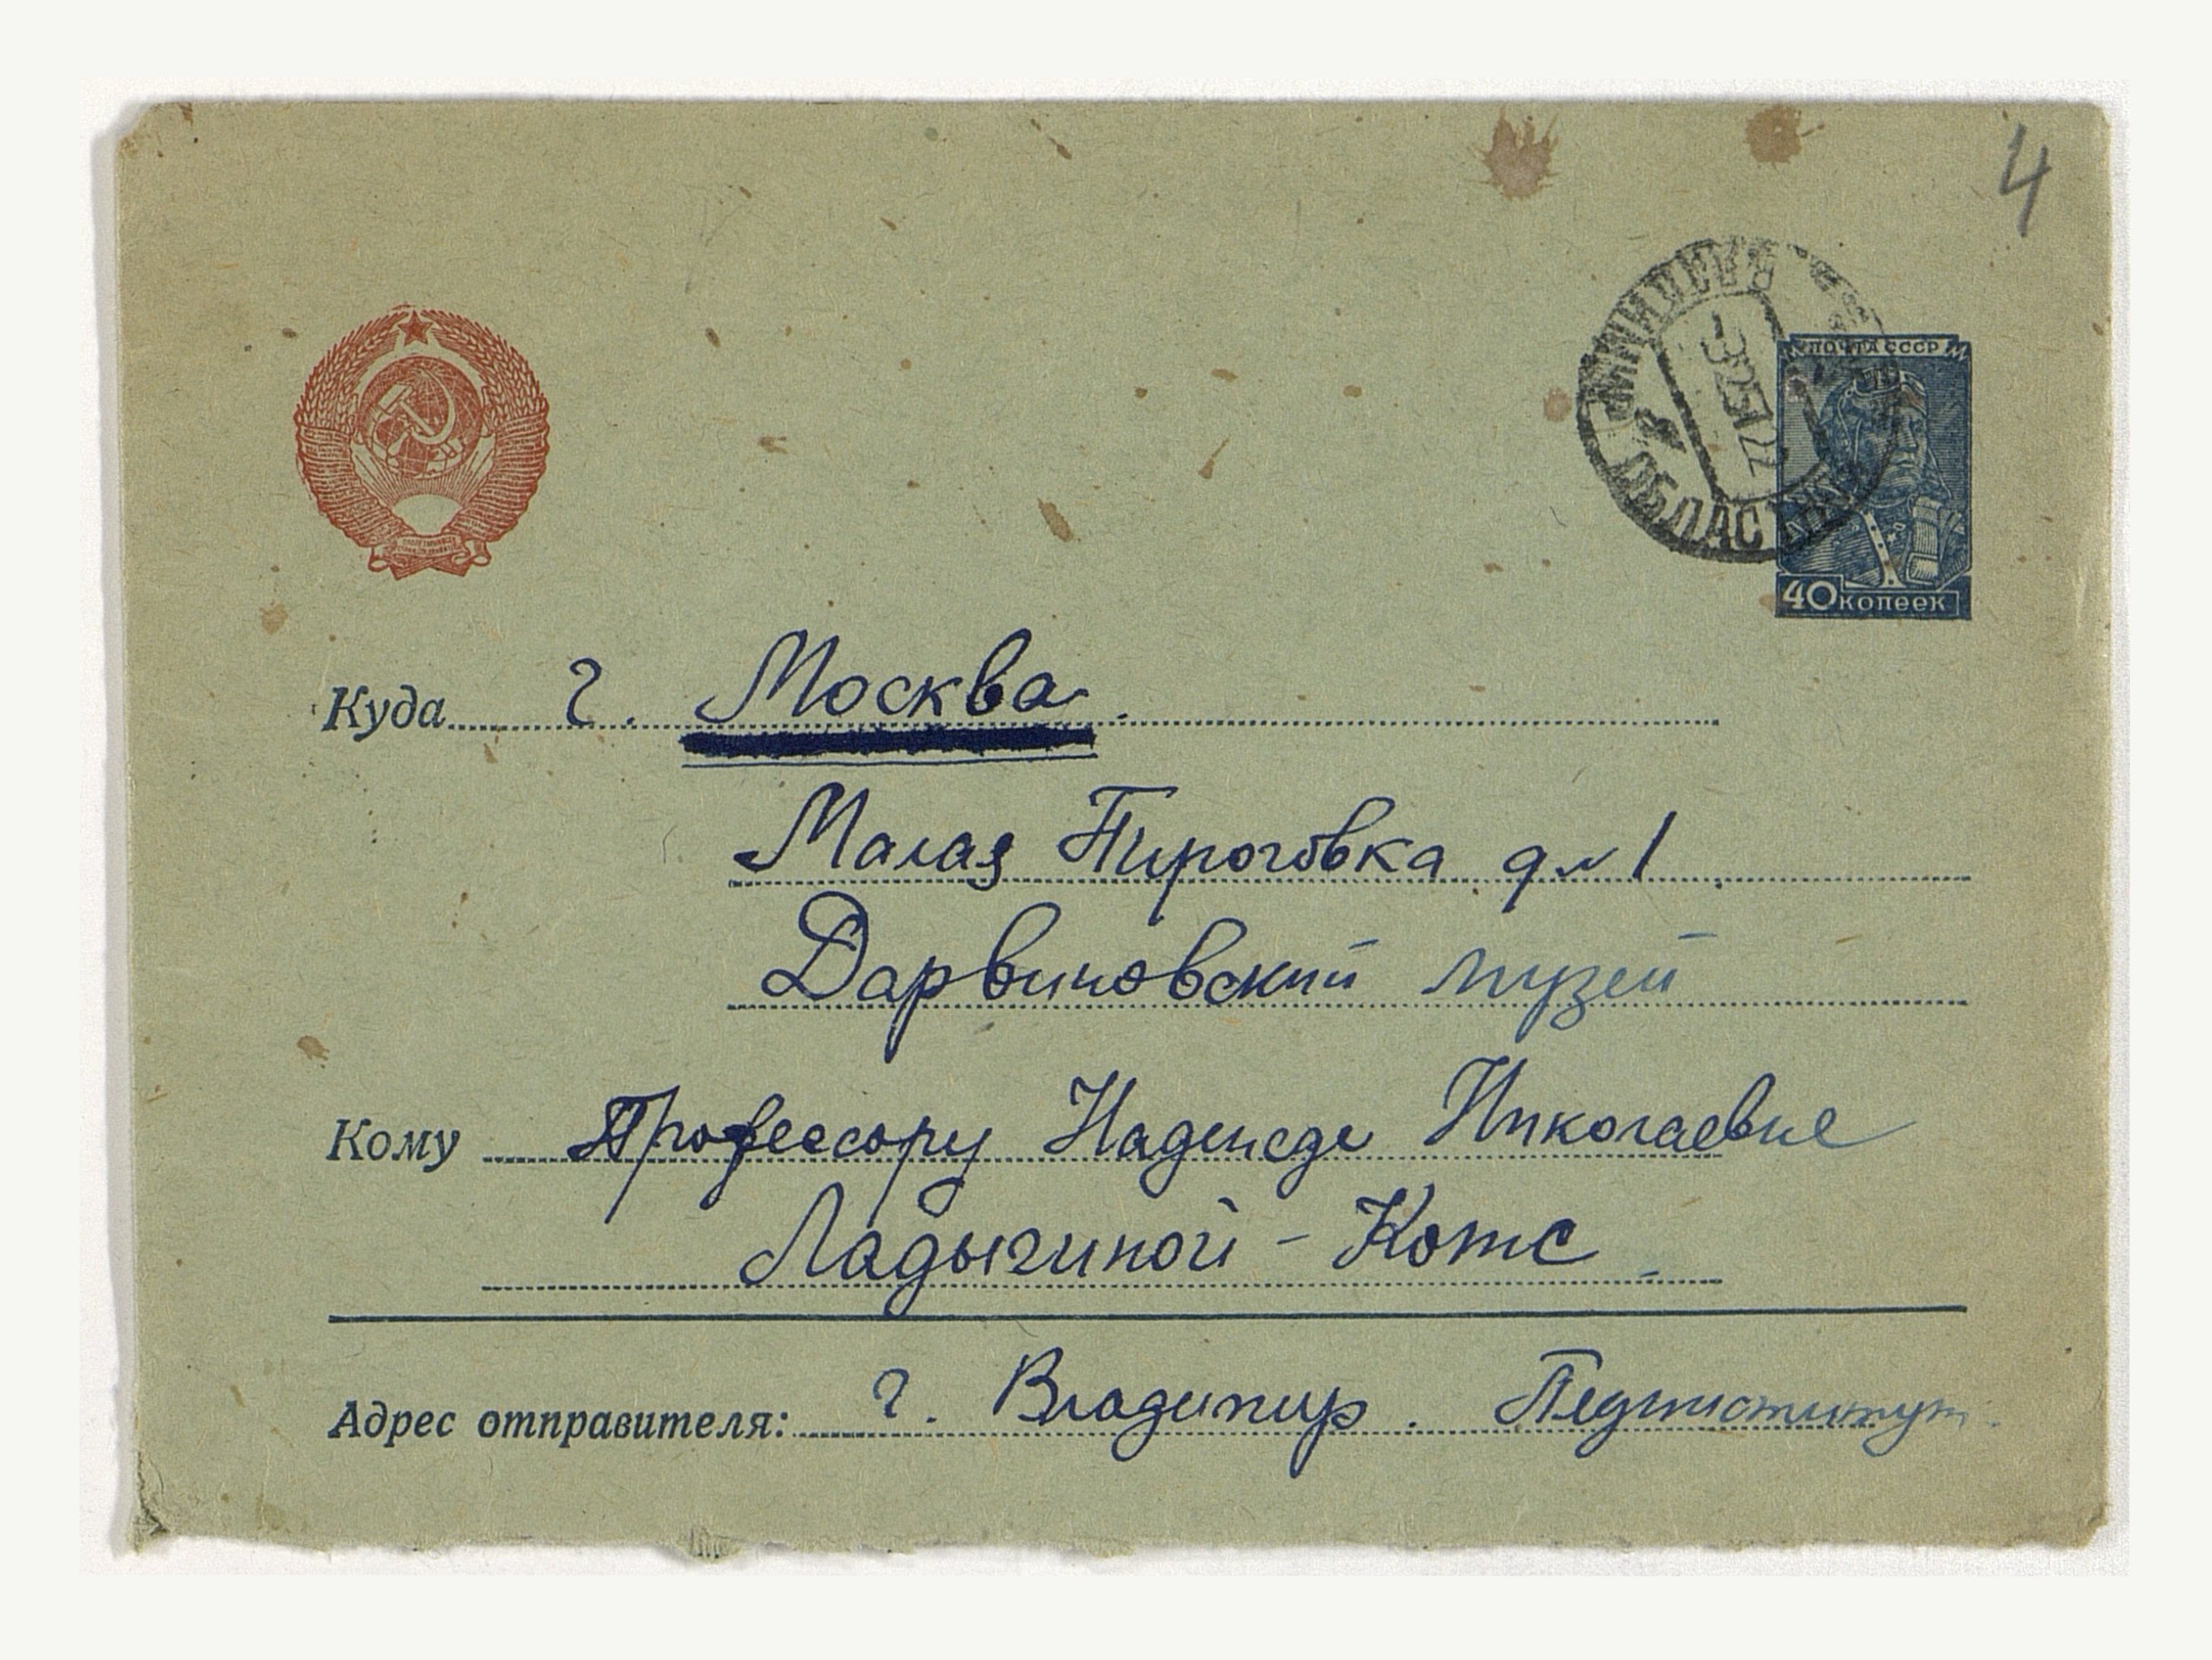 4
ПОЧТА СССР
40 копеек
Куда г. Москва.
Малая Пироговка д № 1
Дарвиновский музей
Кому Профессору Надежде Николаевне
Ладыгиной - Котс
Адрес отправителя: г. Владимир. Пединститут.